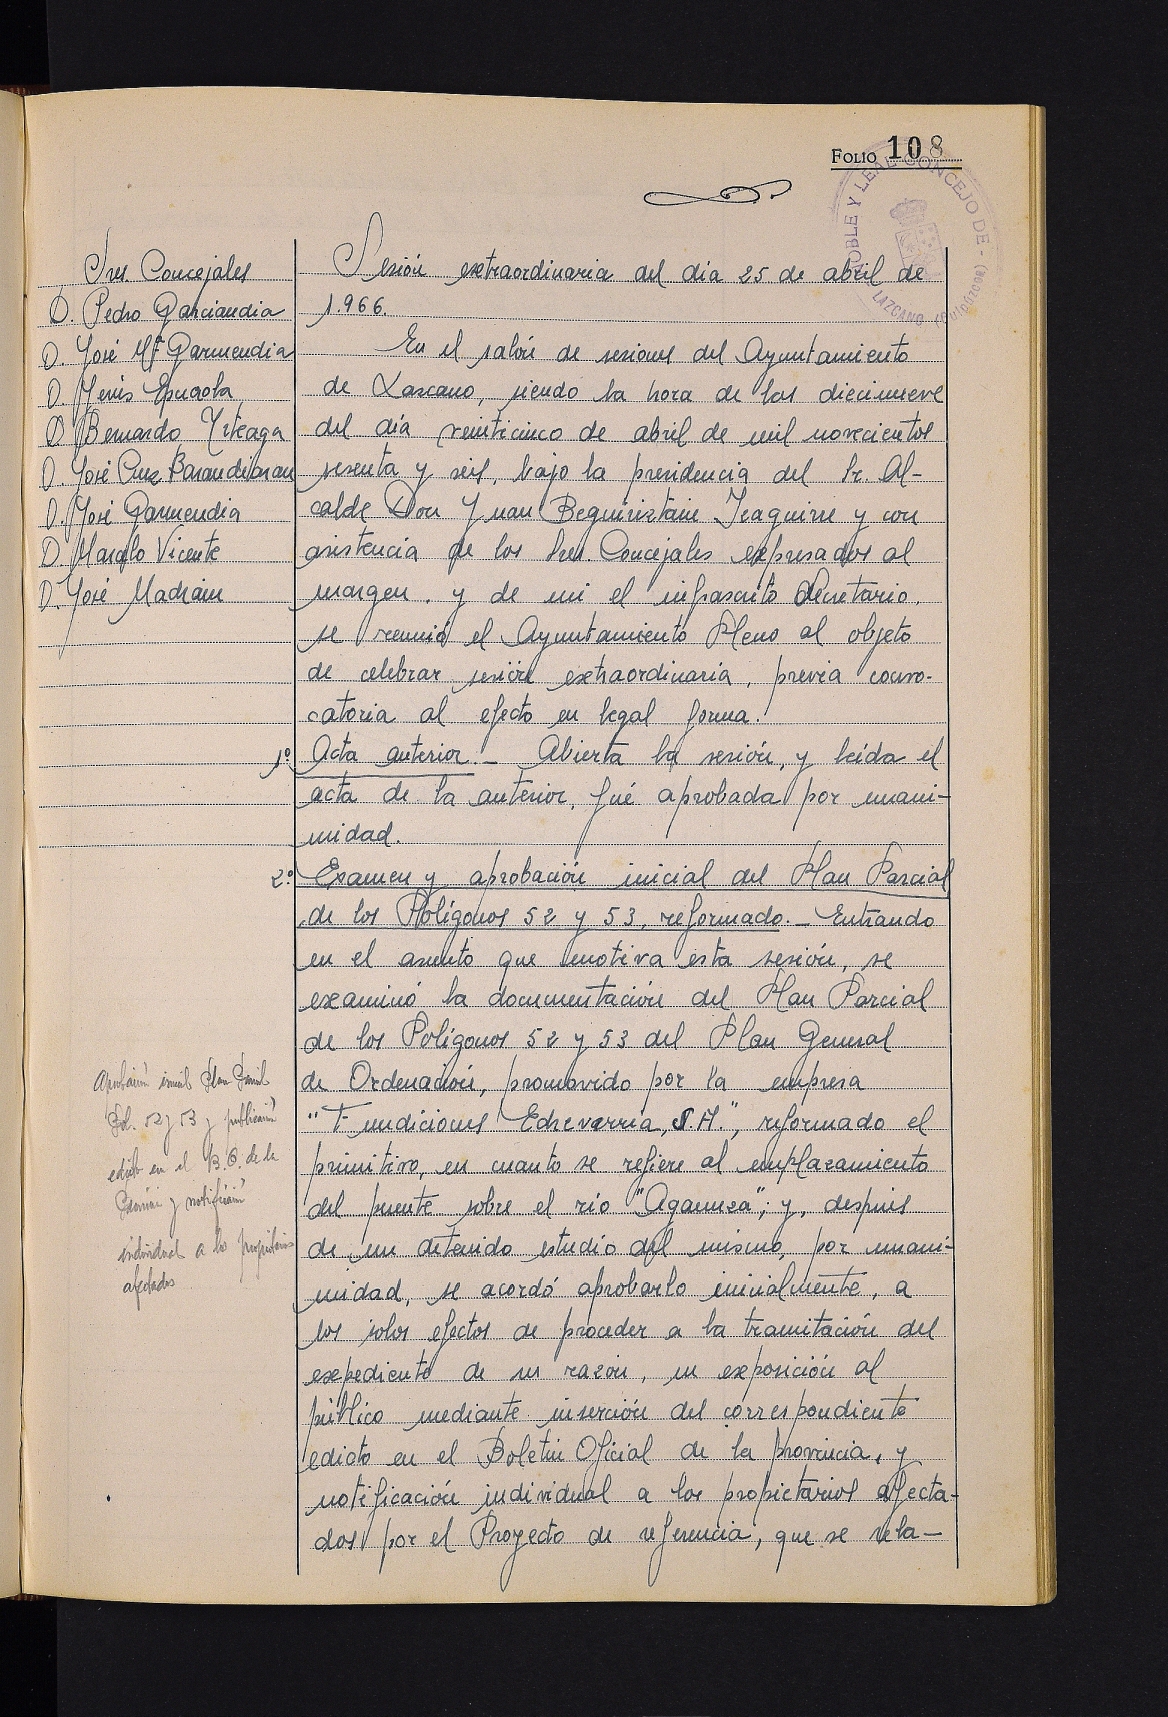 FOLIO 108
NOBLE Y LEAL CONCEJO DE - LAZCANO (Guipúzcoa)
Sres. Concejales
D. Pedro Garciandia
D. José Mª Garmendia
D. Jesús
D. Bernardo Iteaga
D. José Cruz Barandiaran
D. José Garmendia
D. Marcelo Vicente
D. José Madrain
Sesión extraordinaria del dia 25 de abril de
1.966.
En el salón de sesiones del Ayuntamiento
de Lazcano, siendo la hora de las diecinueve
del día veinticinco de abril de mil novecientos
sesenta y seis, bajo la presidencia del Sr. Al-
calde Don Juan Beguiristain Iraguirre y con
asistencia de los Sres. Concejales expresados al
margen, y de mi el infrascrito Secretario,
se reunió el Ayuntamiento Pleno al objeto
de celebrar sesión extraordinaria, previa convo-
catoria al efecto en legal forma.
1º Acta anterior.- Abierta la sesión, y leída el
acta de la anterior, fué aprobada por unani-
midad.
2º Examen y aprobación inicial del Plan Parcial
de los Polígonos 52 y 53, reformado.- Entrando
en el asunto que motiva esta sesión, se
examinó la documentación del Plan Parcial
de los Polígonos 52 y 53 del Plan General
de Ordenación, promovido por la empresa
"Fundiciones Echeverria, S.A.", reformado el
primitivo, en cuanto se refiere al emplazamiento
del puente sobre el río "Agaunza"; y, después
de un detenido estudio del mismo, por unani-
midad, se acordó aprobarlo inicialmente, a
los solos efectos de proceder a la tramitación del
expediente de su razón, su exposición al
público mediante inserción del correspondiente
edicto en el Boletin Oficial de la provincia, y
notificación individual a los propietarios afecta-
dos por el Proyecto de referencia, que se rela-
Aprobación inicial Plan Parcial
Pol. 52 y 53 y publicación
edicto en el B.O. de la
y notificación
individual a los propietarios
afectados